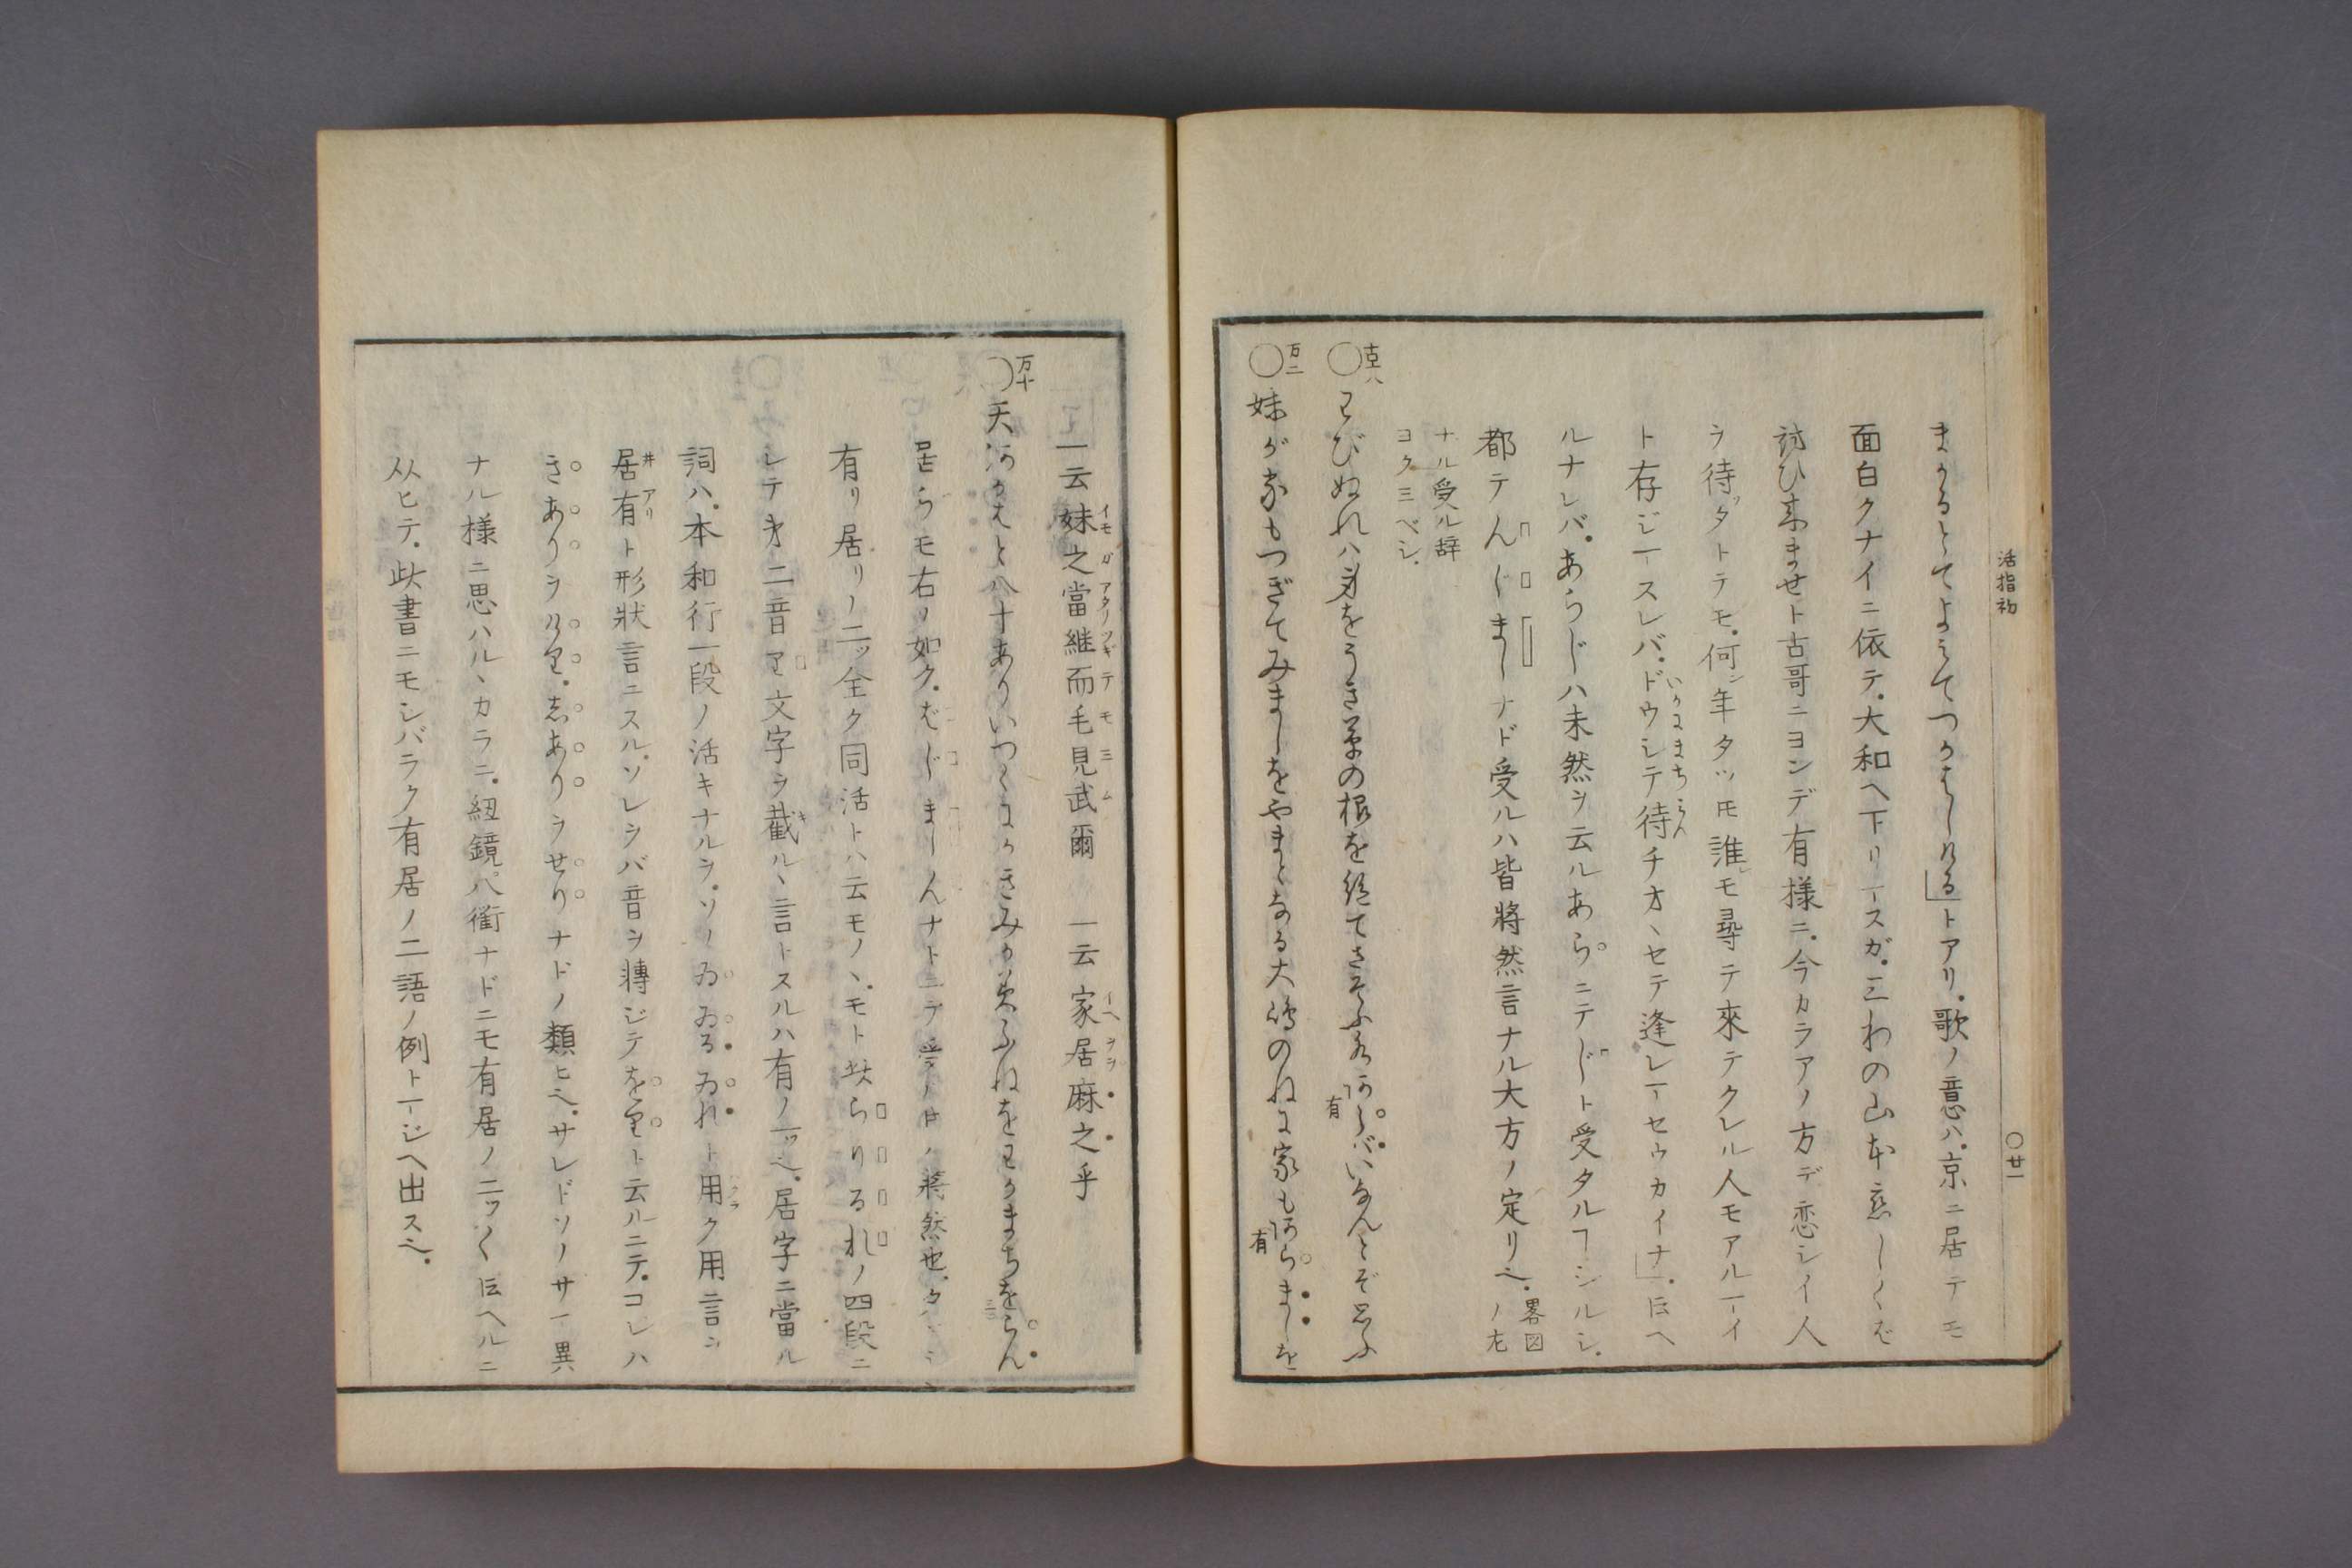 活指初
〇廿一
まかるとてよみてつかはしける」トアリ。歌ノ意ハ。京ニ居テモ
面白クナイニ依テ。大和ヘ下リマスガ。三わの山本恋しくば
訪ひ来ませト古哥ニヨンデ有様ニ。今カラアノ方デ恋シイ人
ヲ待ツタトテモ。何ン年タツ𪜈誰レモ尋テ來テクレル人モアルマイ
ト存ジマスレバ。ドウシテ待チオヽセテ逢レマセウカイナ」。𪜈ヘ
いかにまちみん
ルナレバ。あらじハ未然ヲ云ルあらニテじト受タルヿシルシ。
都テんじましナド受ルハ皆將然言ナル大方ノ定リ也。畧図ノ左
ナル受ル辞
ヨクミベシ。
古十八
〇わびぬれハ身をうき草の根を絶てさそふ水有らバいなんとぞ思ふ
万二
〇妹が家もつぎてみましをやまとなる大嶋のねに家も有らましを
一云妹之當継而毛見武爾 一云家居麻之乎
イモガアタリツギテモミム イヘヲラ
万十
〇天河かはと八十ありいつくにかきみかみふねをわかまちをらん
居らモ右ノ如ク。ばじましんナトニテ受ル時ノ將然也。タヾシ
有リ居リノ二ッ全ク同活トハ云モノヽ。モト此らりるれノ四段ニ
シテ才二音り文字ヲ截ルヽ言トスルハ有ノ一ッ也。居字ニ當ル
詞ハ。本和行一段ノ活キナルヲ。ソノゐゐるゐれト用ク用言ヲ
居有ト形狀言ニスル。ソレヲバ音ヲ轉ジテをりト云ルニテ。コレハ
井アリ
きありヲけり。しありヲせりナドノ類ヒ也。サレドソノサマ異
ナル様ニ思ハルヽカラニ。紐鏡。八衢ナドニモ有居ノ二ッヲ𪜈ヘルニ
从ヒテ。此書ニモシバラク有居ノ二語ノ例トマジヘ出ス也。